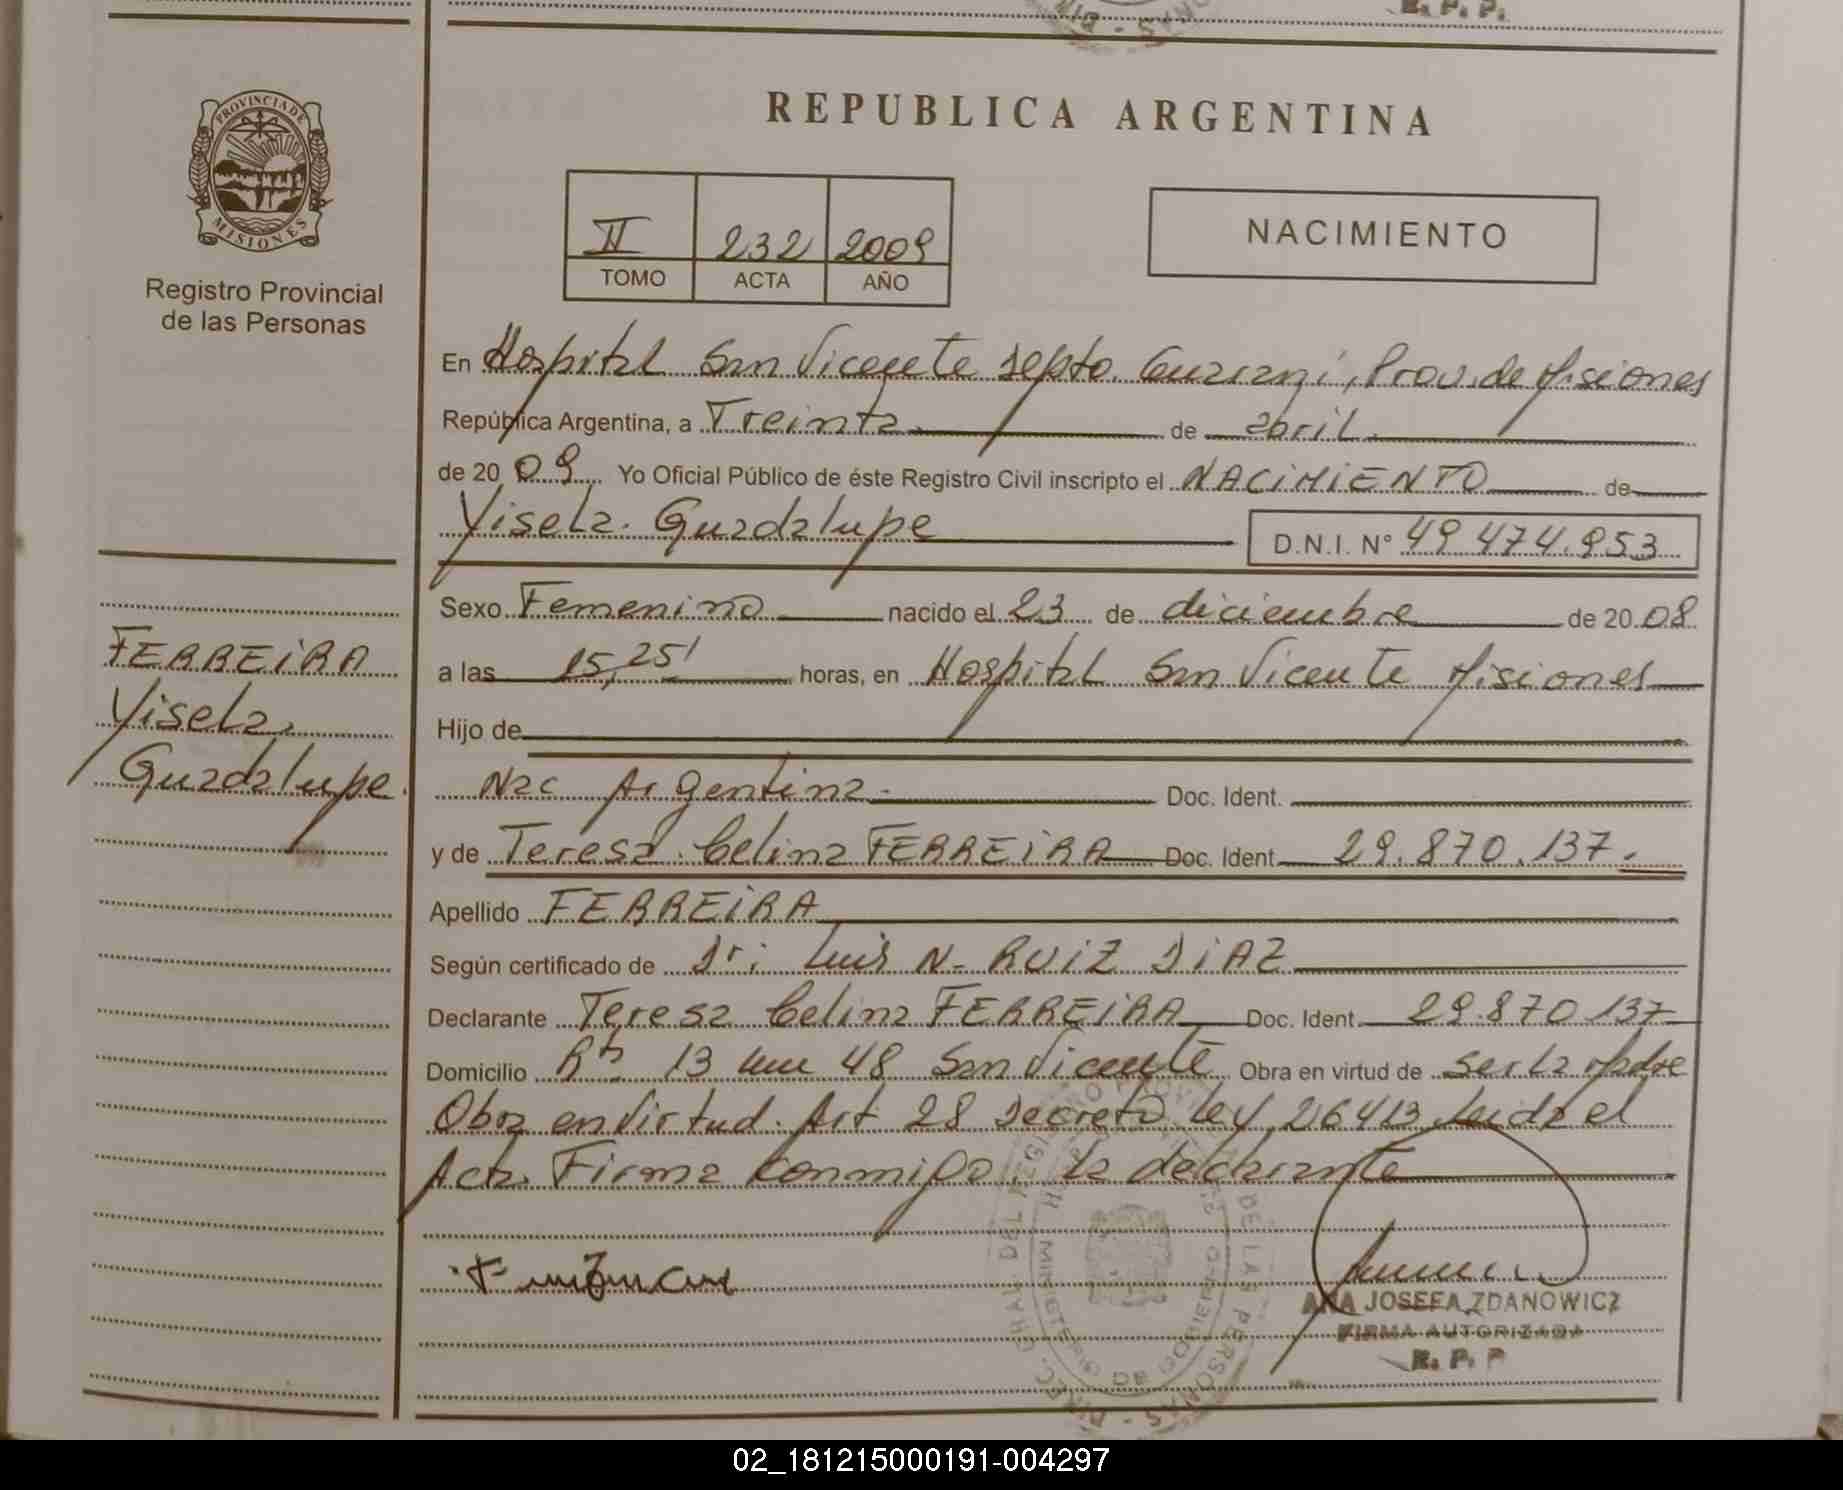 R. P. P.
REPUBLICA ARGENTINA
PROVINCIA DE
MISIONES
Registro Provincial
de las Personas
II 232 2009
TOMO ACTA AÑO
NACIMIENTO
En Hospital San Vicente Depto. Guarani, Prov. de Misiones
República Argentina, a Treinta de abril
de 20 09 Yo Oficial Público de éste Registro Civil inscripto el NACIMIENTO de
Yisela Guadalupe D.N.I. N° 49 474.953
Sexo Femenino nacido el 23 de diciembre de 20 08
a las 15,25' horas, en Hospital San Vicente Misiones
Hijo de
Nac Argentina Doc. Ident.
y de Teresa Celina FERREIRA Doc. Ident. 29.870.137.
Apellido FERREIRA
Según certificado de Dr: Luis N- RUIZ DIAZ
Declarante Teresa Celina FERREIRA Doc. Ident. 29.870 137
Domicilio Rta 13 km 48 San Vicente Obra en virtud de ser la Madre
Obra en virtud Art 28 Decreto Ley 26413 Leida el
Acta Firma conmigo la declarante
FERREIRA
Yisela
Guadalupe
ANA JOSEFA ZDANOWICZ
FIRMA AUTORIZADA
R. P. P
02_181215000191-004297